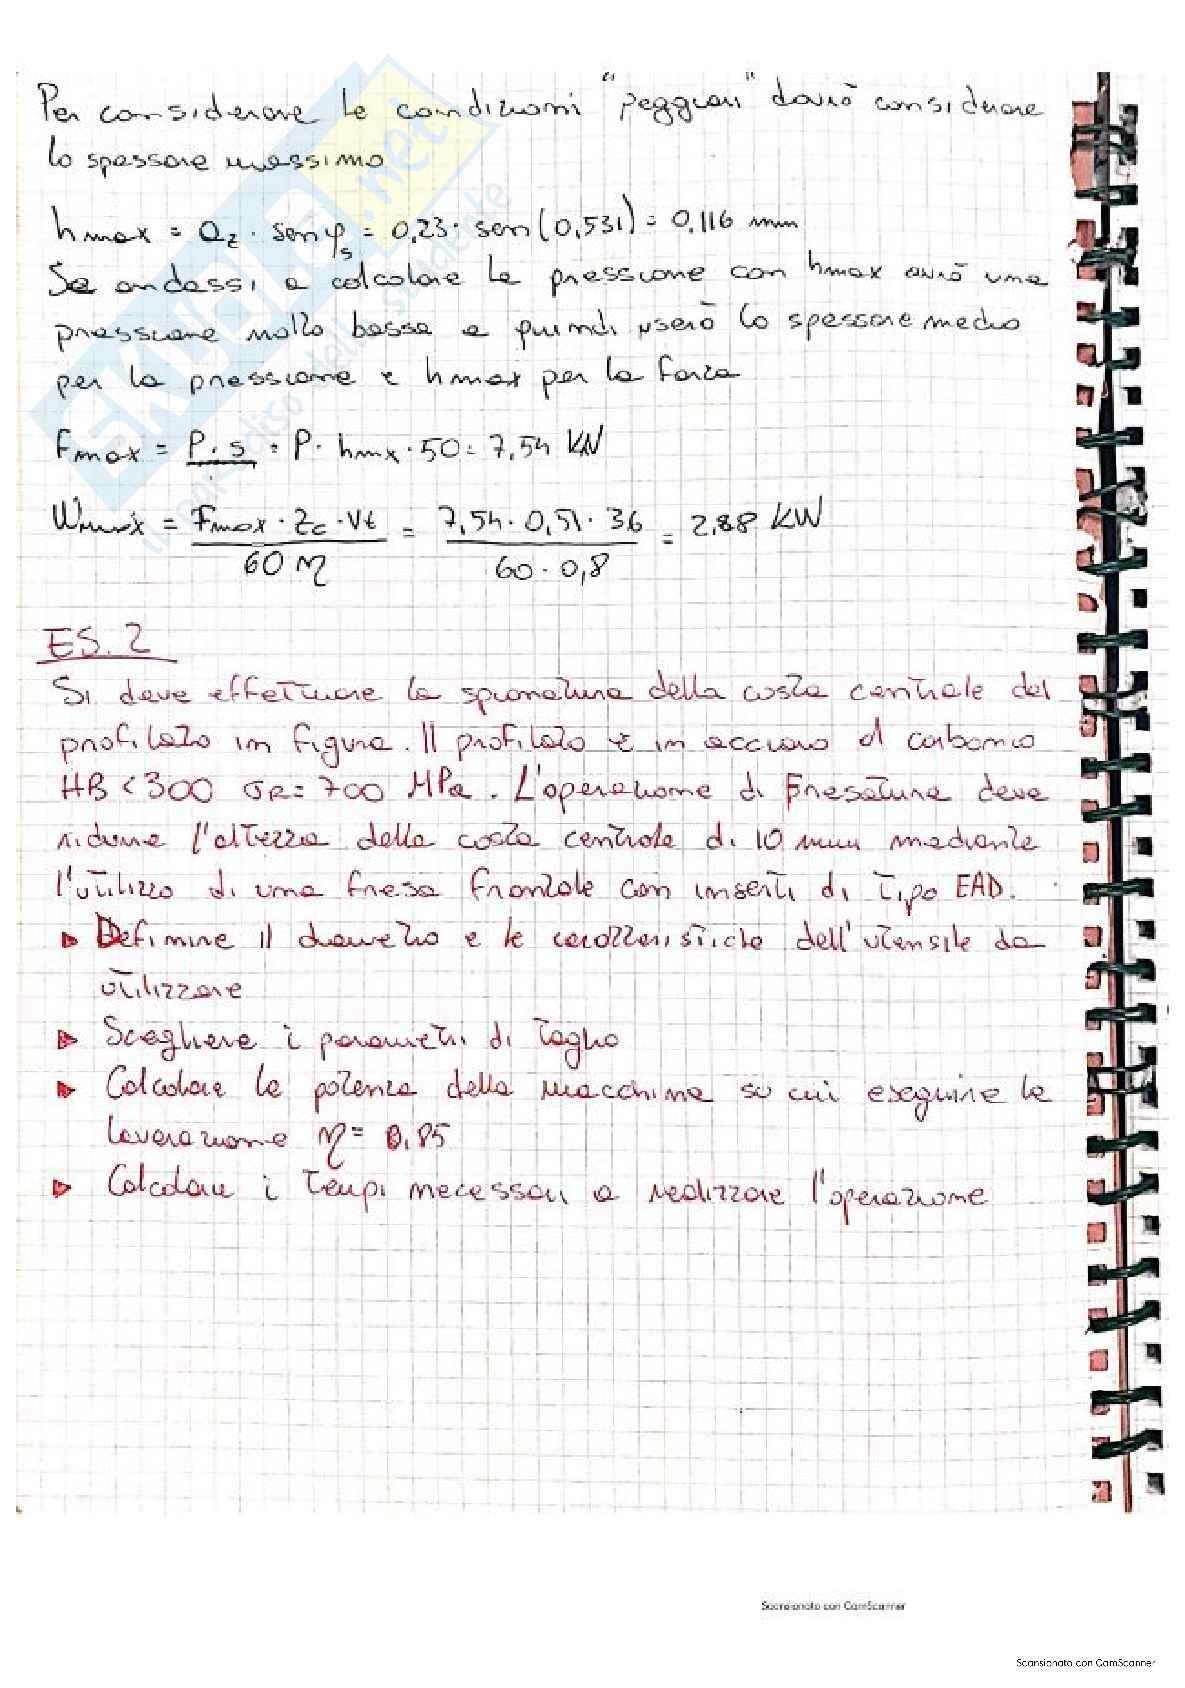 Per considerare le condizioni "peggiori" dovrò considerare
lo spessore massimo
hmax = az · sen φs = 0,23 · sen(0,531) = 0,116 mm
Se andassi a calcolare la pressione con hmax avrò una
pressione molto bassa e quindi userò lo spessore medio
per la pressione e hmax per la forza
Fmax = P · s = P · hmx · 50 = 7,54 KN
Wmax = Fmax · Zc · Vt / 60 η = 7,54 · 0,51 · 36 / 60 · 0,8 = 2,88 KW
ES. 2
Si deve effettuare la spianatura della costa centrale del
profilato in figura. Il profilato è in acciaio al carbonio
HB < 300 σR = 700 MPa. L'operazione di Fresatura deve
ridurre l'altezza della costa centrale di 10 mm mediante
l'utilizzo di una fresa frontale con inserti di tipo EAD.
Definire il diametro e le caratteristiche dell'utensile da
utilizzare
Scegliere i parametri di taglio
Calcolare la potenza della macchina su cui eseguire la
lavorazione η = 0,85
Calcolare i tempi necessari a realizzare l'operazione
SKUOLA.net
il paradiso dello studente
Scansionato con CamScanner
Scansionato con CamScanner